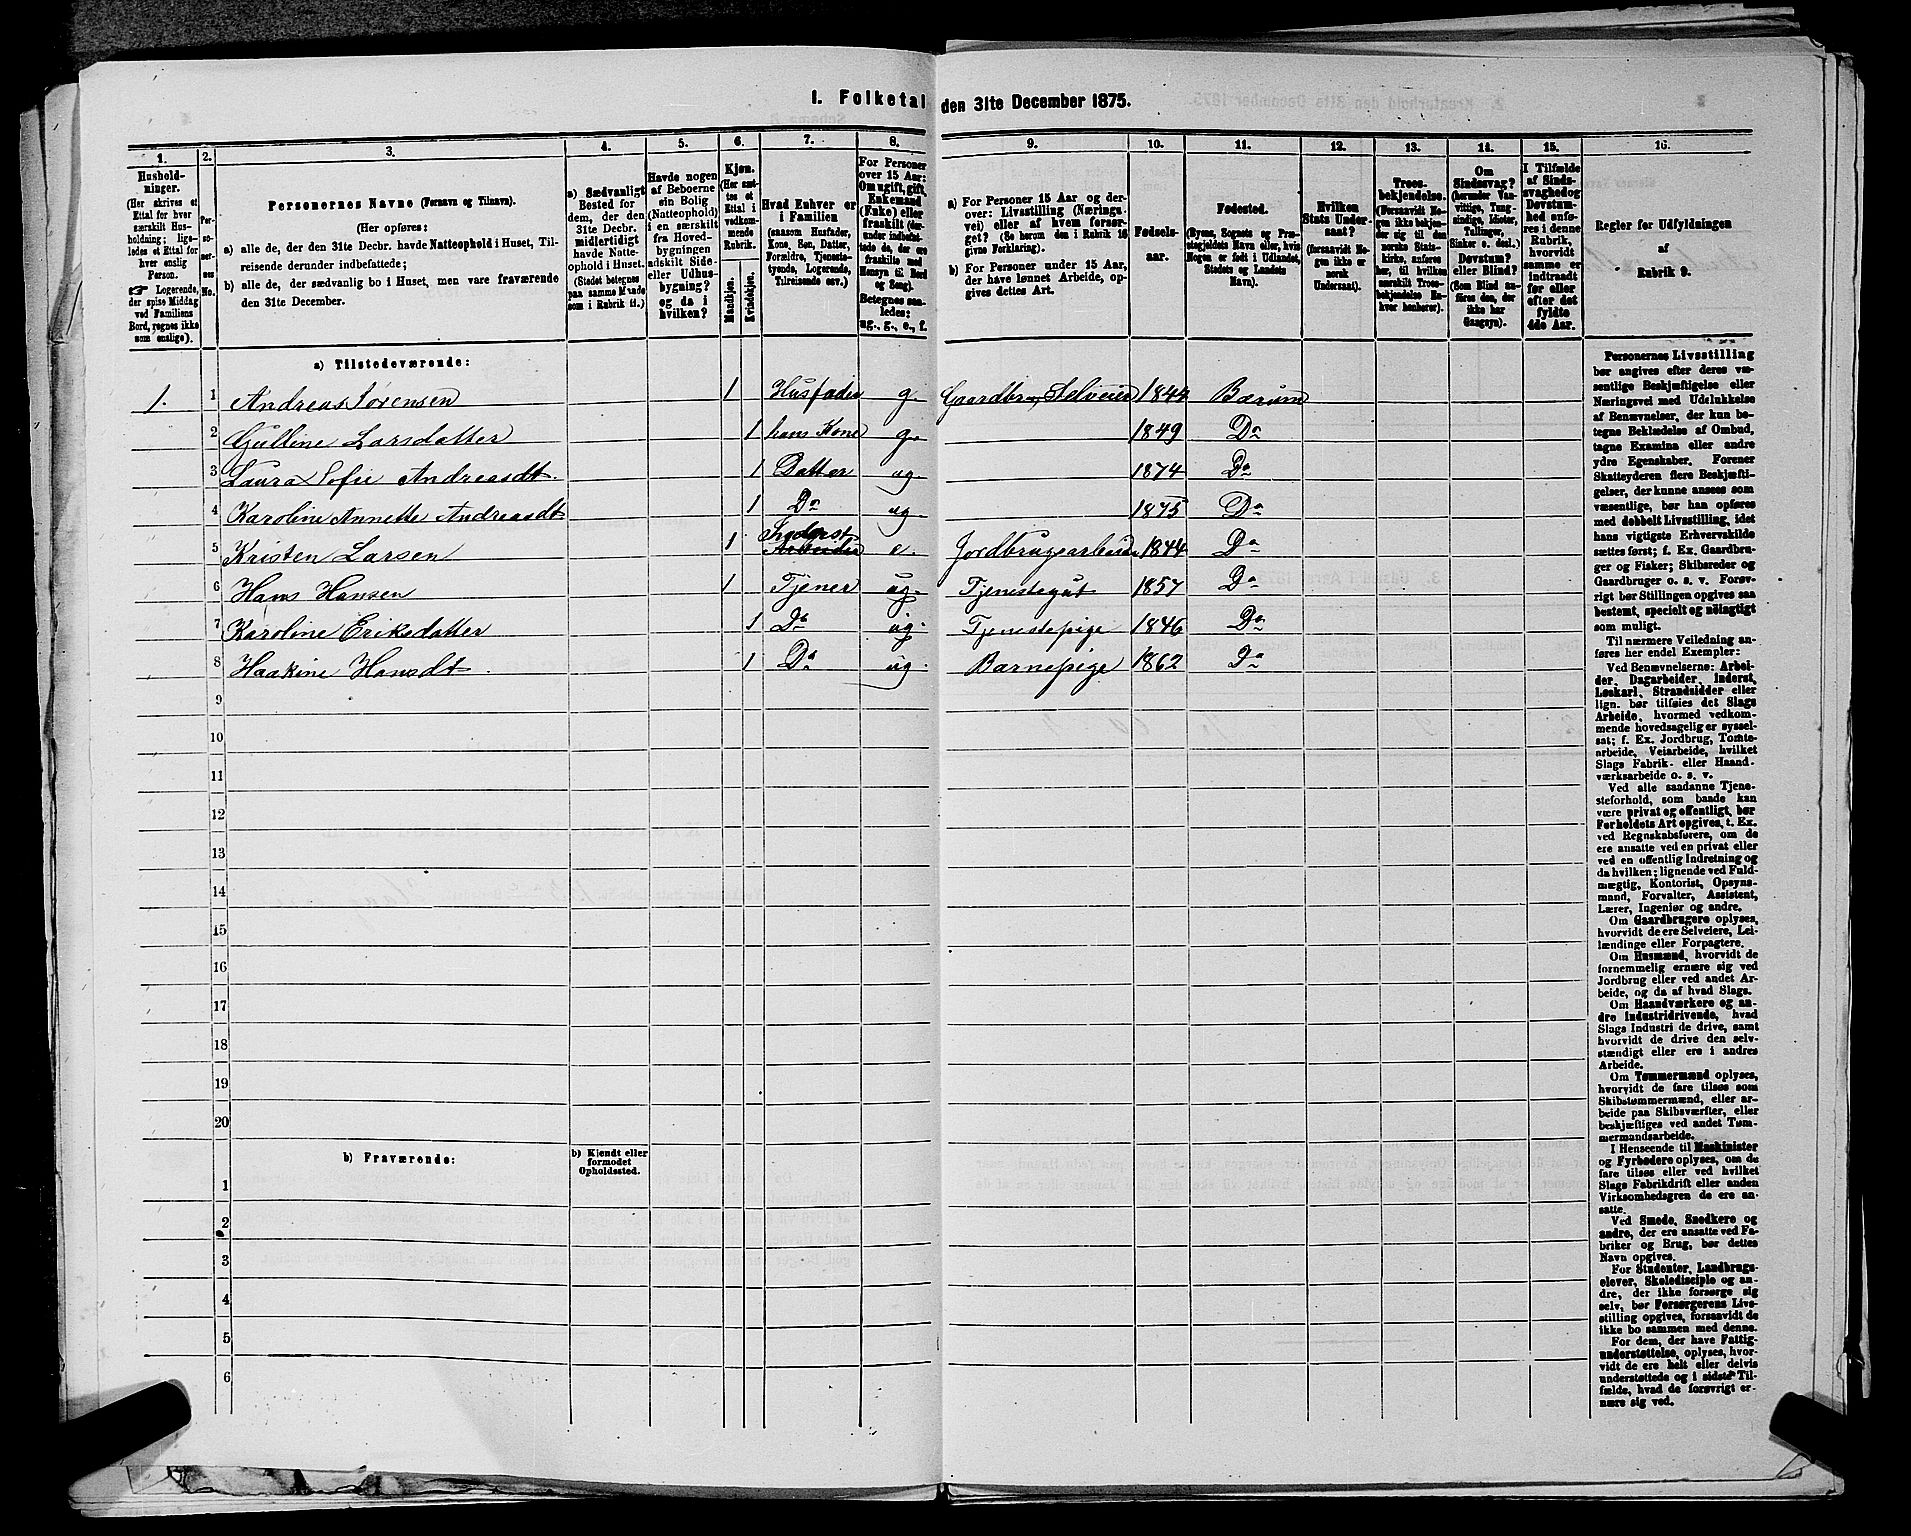 1. Folketal den 31te December 1875.
1. 2. 3. 4. 5. 6. 7. 8. 9. 10. 11. 12. 13. 14. 15. 16.
Hushold-
ninger.
(Her skrives et
Ettal for hver
særskilt Hus-
holdning; lige-
ledes et Ettal for
hver enslig
Person.
☞ Logerende,
der spise Middag
ved Familiens
Bord, regnes ikke
som enslige).
Per-
so-
ner-
nes
No.
Personernes Navne (Fornavn og Tilnavn).
(Her opføres:
a) alle de, der den 31te Decbr. havde Natteophold i Huset, Til-
reisende derunder indbefattede;
b) alle de, der sædvanlig bo i Huset, men vare fraværende
den 31te December.
a) Sædvanligt
Bosted for
dem, der den
31te Decbr.
midlertidigt
havde Natte-
ophold i Huset.
(Stedet betegnes
paa samme Maade
som i Rubrik 11.)
Havde nogen
af Beboerne
sin Bolig
(Natteophold)
i en særskilt
fra Hoved-
bygningen
adskilt Side-
eller Udhus-
bygning?
og da i
hvilken?
Kjøn.
(Her sæt-
tes et
Ettal i
vedkom-
mende
Rubrik.
Mandkjøn.
Kvindekjøn.
Hvad Enhver er
i Familien
(saasom Husfader,
Kone, Søn, Datter,
Forældre, Tjeneste-
tyende, Logerende,
Tilreisende osv.)
For Personer
over 15 Aar:
Om ugift, gift,
Enkemand
(Enke) eller
fraskilt (der-
under indbefat-
tede de, der ere
fraskilte med
Hensyn til Bord
og Seng).
Betegnes saa-
ledes:
ug., g., e., f.
a) For Personer 15 Aar og der-
over: Livsstilling (Nærings-
vei) eller af hvem forsør-
get? (Se herom den i Rubrik 16
givne Forklaring).
b) For Personer under 15 Aar,
der have lønnet Arbeide, op-
gives dettes Art.
Fødsels-
aar.
Fødested.
(Byens, Sognets og Præ-
stegjeldets Navn eller, hvis
Nogen er født i Udlandet,
Stedets og Landets
Navn).
Hvilken
Stats Under-
saat?
(forsaavidt No-
gen ikke er
norsk
Undersaat).
Troes-
bekjendelse.
(Forsaavidt No-
gen ikke bekjen-
der sig til den
norske Stats-
kirke, anføres
her, til hvilken
særskilt Troes-
bekjendelse En-
hver henhører).
Om
Sindssvag?
(herunder Van-
vittige, Tung-
sindige, Idioter,
Tullinger,
Sinker o. desl.)
Døvstum?
eller Blind?
(Som Blind an-
føres den, der
ikke har
Gangsyn).
I Tilfælde
af Sinds-
svaghed og
Døvstum-
hed anfø-
res i denne
Rubrik,
hvorvidt
samme er
indtraadt
før eller
efter det
fyldte
4de Aar.
Regler for Udfyldningen
af
Rubrik 9.
a) Tilstedeværende:
1. 1 Andreas Sørensen 1 Husfader g. Gaardbr. Selveier 1844 Bærum
2 Gulline Larsdatter 1 hans Kone g. 1849 Do
3 Laura Sofie Andreasdt. 1 Datter ug. 1874 Do
4 Karoline Annette Andreasdt 1 Do ug. 1875 Do
5 Kristen Larsen 1 Inderst Arbeider e. Jordbrugsarbeider 1844 Do
6 Hans Hansen 1 Tjener ug. Tjenestegut 1857 Do
7 Karoline Eriksdatter 1 Do ug. Tjenestepige 1846 Do
8 Haakine Hansdt. 1 Do ug. Barnepige 1862 Do
9
10
11
12
13
14
15
16
17
18
19
20
b) Fraværende:
b) Kjendt eller
formodet
Opholdssted.
1
2
3
4
5
6
Personernes Livsstilling
bør angives efter deres væ-
sentlige Beskjæftigelse eller
Næringsvei med Udelukkelse
af Benævnelser, der kun be-
tegne Beklædelse af Ombud,
tagne Examina eller andre
ydre Egenskaber. Forener
Skatteyderen flere Beskjæfti-
gelser, der kunne ansees som
væsentlige, bør han opføres
med dobbelt Livsstilling, idet
hans vigtigste Erhvervskilde
sættes først; f. Ex. Gaardbru-
ger og Fisker; Skibsreder og
Gaardbruger o. s. v. Forøv-
rigt bør Stillingen opgives saa
bestemt, specielt og nöiagtigt
som muligt.
Til nærmere Veiledning an-
føres her endel Exempler:
Ved Benævnelserne: Arbei-
der, Dagarbeider, Inderst,
Løskarl, Strandsidder eller
lign. bør tilføies det Slags
Arbeide, hvormed vedkom-
mende hovedsagelig er syssel-
sat; f. Ex. Jordbrug, Tomte-
arbeide, Veiarbeide, hvilket
Slags Fabrik- eller Haand-
værksarbeide o. s. v.
Ved alle saadanne Tjene-
steforhold, som baade kan
være privat og offentligt, bør
Forholdets Art opgives, t. Ex.
ved Regnskabsførere, om de
ere ansatte ved en privat eller
ved en offentlig Indretning og
da hvilken; lignende ved Fuld-
mægtig, Kontorist, Opsyns-
mand, Forvalter, Assistent,
Lærer, Ingeniør og andre.
Om Gaardbrugere oplyses,
hvorvidt de ere Selveiere, Lei-
lændinge eller Forpagtere.
Om Husmænd, hvorvidt de
fornemmelig ernære sig ved
Jordbrug eller ved andet Ar-
beide, og da af hvad Slags.
Om Haandværkere og an-
dre Industridrivende, hvad
Slags Industri de drive, samt
hvorvidt de drive den selv-
stændigt eller ere i andres
Arbeide.
Om Tømmermænd oplyses,
hvorvidt de fare tilsøs som
Skibstømmermænd, eller ar-
beide paa Skibsværfter, eller
beskjæftiges ved andet Tøm-
mermandsarbeide.
I Henseende til Maskinister
og Fyrbødere oplyses, om de
fare tilsøs eller ved hvilket
Slags Fabrikdrift eller anden
Virksomhedsgren de ere an-
satte.
Ved Smede, Snedkere og
andre, der ere ansatte ved Fa-
briker og Brug, bør dettes
Navn opgives.
For Studenter, Landbrugs-
elever, Skoledisciple og an-
dre, der ikke forsørge sig
selv, bør Forsørgerens Livs-
stilling opgives, forsaavidt de
ikke bo sammen med denne.
For dem, der have Fattig-
understøttelse, oplyses, hvor-
vidt de ere helt eller delvis
understøttede og i sidste Til-
fælde, hvad de forøvrigt er-
nære sig ved.